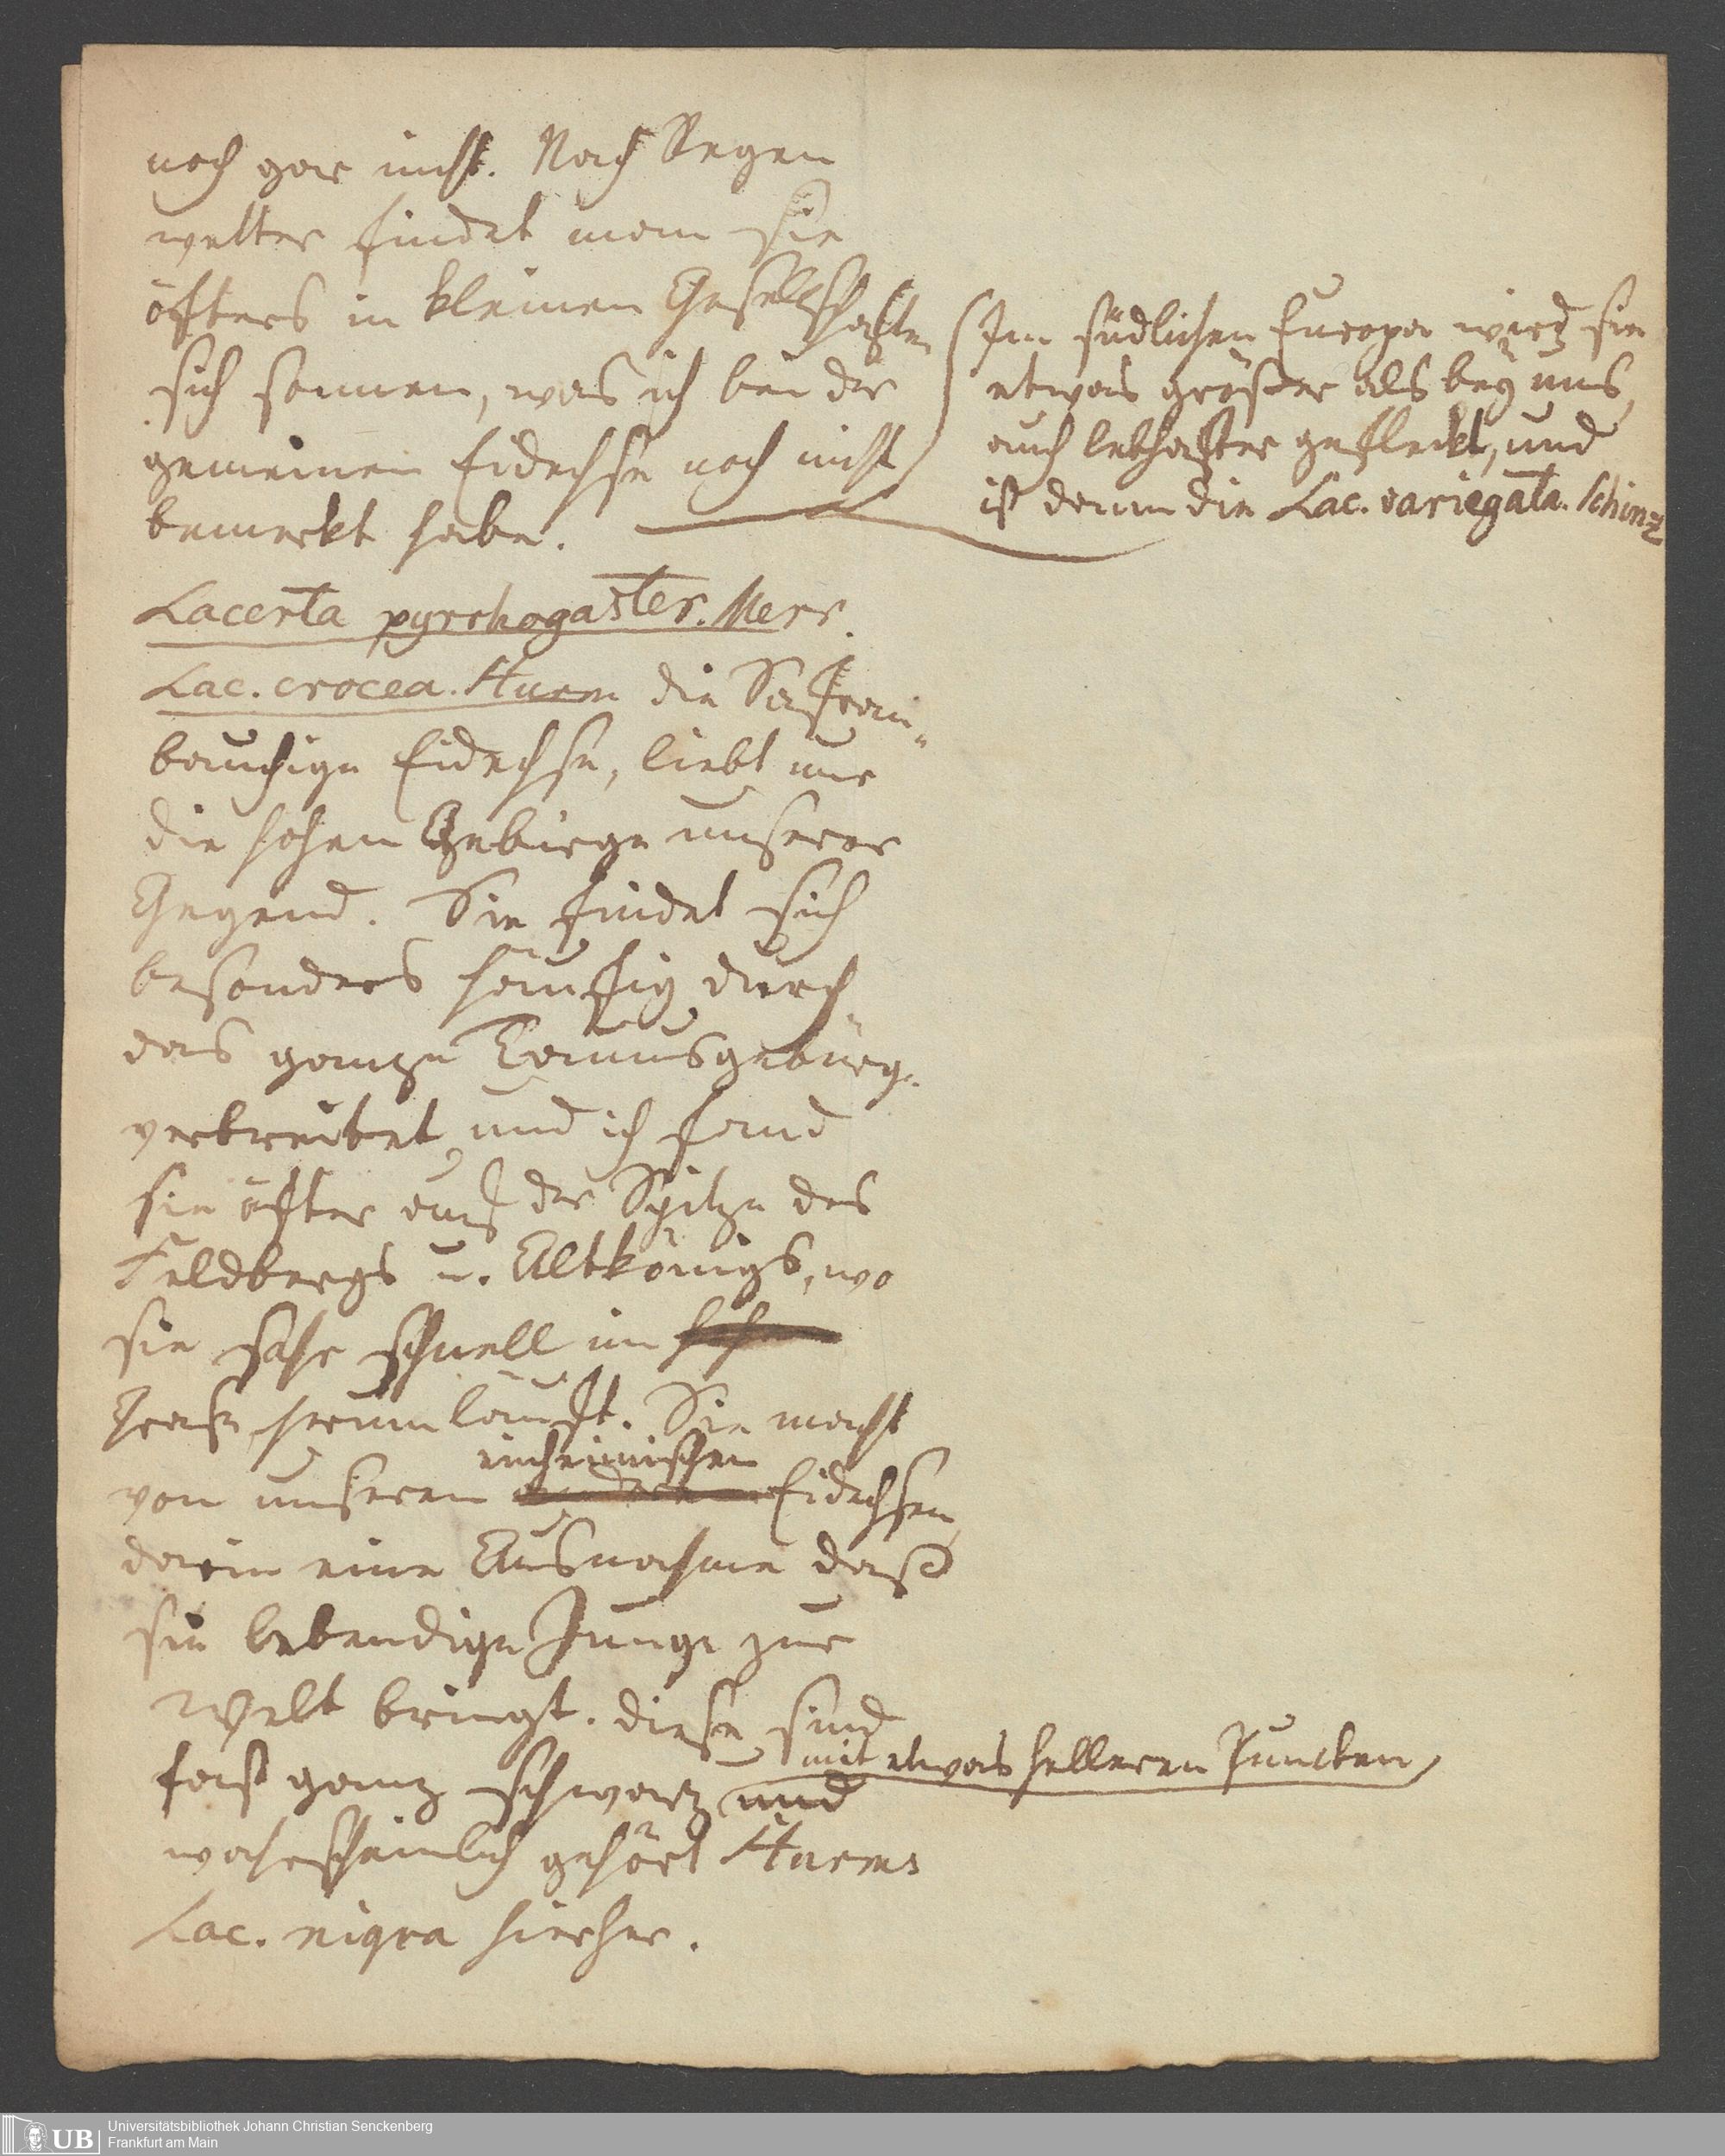 noch gar nicht. Nach Regen
wetter findet man sie
öfters in kleinen Gesellschaften
sich sonnen, was ich bei der
gemeinen Eidechse noch nicht
bemerkt habe.
Im südlichen Europa wird sie
etwas größer als bey uns,
auch lebhafter gefleckt, und
ist dann die Lac. variegata. Schinz
Lacerta pyrrhogaster. Merr.
Lac. crocea. Sturm die Safran"
bauchige Eidechse, liebt nur
die hohen Gebirge unserer
Gegend. Sie findet sich
besonders häuffig durch
das ganze Taunusgebürg.
verbreitet, und ich fand
sie öfter auf der Spitze des
Feldbergs u. Altkönigs, wo
sie sehr schnell im
Graße herumläuft. Sie macht
einheimischen
von unseren anderen Eidechsen
darin eine Ausnahme daß
sie lebendige Junge zur
Welt bringt. diese sind
mit etwas helleren Puncten
fast ganz schwarz und
wahrscheinlich gehört Sturms
Lac. nigra hierher.
UB Universitätsbibliothek Johann Christian Senckenberg
Frankfurt am Main